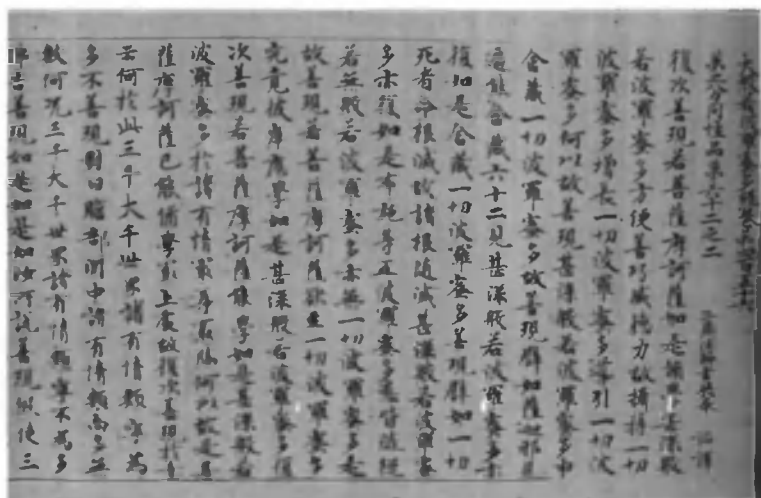 大般若波羅蜜多經卷第四百五十五
第二分同性品第六十二之二 三藏法師玄奘奉 詔譯
復次善現若菩薩摩訶薩如是修學甚深般
若波羅蜜多方便善巧威德力故攝持一切
波羅蜜多增長一切波羅蜜多導引一切波
羅蜜多何以故善現甚深般若波羅蜜多中
含藏一切波羅蜜多故善現譬如薩迦耶見
遍能含藏六十二見甚深般若波羅蜜多亦
復如是含藏一切波羅蜜多善現譬如一切
死者命根滅故諸根隨滅甚深般若波羅蜜
多亦復如是布施等五波羅蜜多悉皆隨從
若無般若波羅蜜多亦無一切波羅蜜多是
故善現若菩薩摩訶薩欲至一切波羅蜜多
究竟彼岸應學如是甚深般若波羅蜜多復
次善現若菩薩摩訶薩能學如是甚深般若
波羅蜜多於諸有情最尊最勝何以故是菩
薩摩訶薩已能修學無上處故復次善現於意
云何於此三千大千世界諸有情類寧為
多不善現對曰贍部洲中諸有情類尚多無
數何況三千大千世界諸有情類寧不為多
佛告善現如是如是如汝所說善現假使三